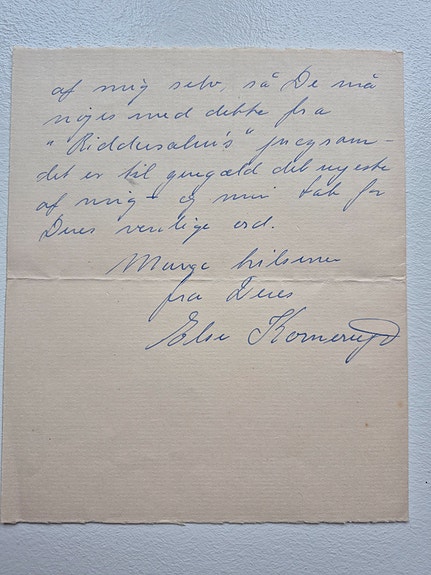 af mig selv, så De må
nøjes med dette fra
"Riddersalen's" program -
det er til gengæld det nyeste
af mig - og min tak for
Deres venlige ord.
Mange hilsener
fra Deres
Else Kornerup